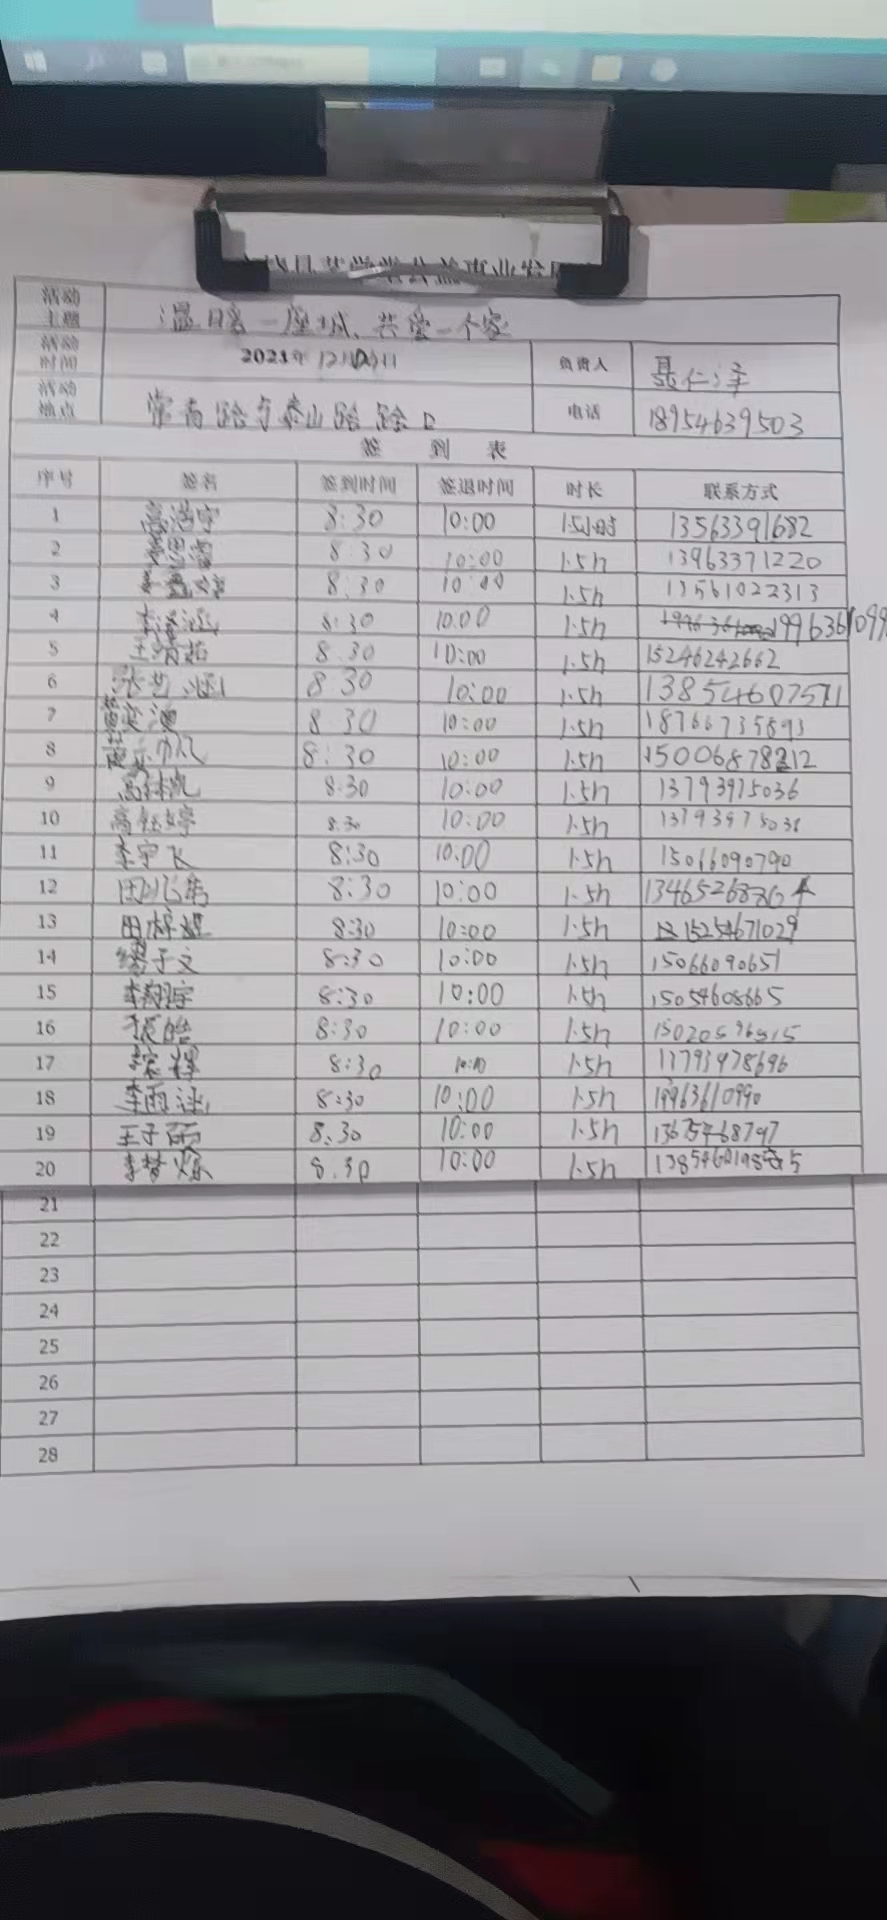 活动主题 温暖一座城、共爱一个家
活动时间 2021年12月 日 负责人 聂仁泽
活动地点 常青路与泰山路路口 电话 18954639503
签 到 表
序号 签名 签到时间 签退时间 时长 联系方式
1 高浩宇 8:30 10:00 1.5小时 13563391682
2 8:30 10:00 1.5h 13963371220
3 8:30 10:00 1.5h 13561022313
4 李泽涵 8:30 10:00 1.5h
5 8:30 10:00 1.5h 15246242662
6 张艺涵 8:30 10:00 1.5h 13854607571
7 8:30 10:00 1.5h 18766735893
8 8:30 10:00 1.5h 15006878212
9 高林凯 8:30 10:00 1.5h 13793975036
10 高钰婷 8:30 10:00 1.5h
11 李宇飞 8:30 10:00 1.5h 15066090790
12 8:30 10:00 1.5h
13 8:30 10:00 1.5h 15254671029
14 8:30 10:00 1.5h 15066090651
15 李翔宇 8:30 10:00 1.5h 15054608665
16 张皓 8:30 10:00 1.5h
17 8:30 10:00 1.5h 13793978696
18 李雨涵 8:30 10:00 1.5h 19963610990
19 王子硕 8:30 10:00 1.5h
20 李梦 8:30 10:00 1.5h
21
22
23
24
25
26
27
28